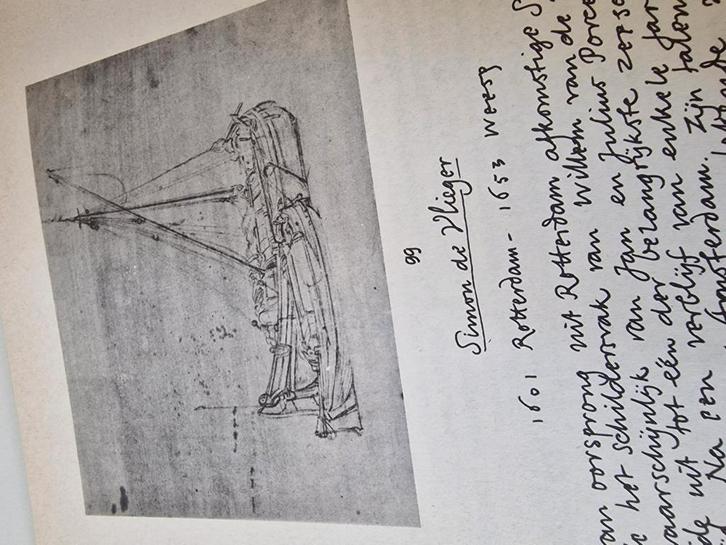 99
Simon de Vlieger
1601 Rotterdam - 1653 Weesp
van oorsprong uit Rotterdam afkomstige S
het schildersvak van Willem van de
waarschijnlijk van Jan en Julius Porce
uit tot één der belangrijkste zeesc
Na een verblijf van enkele jar
Amsterdam. Zijn talen